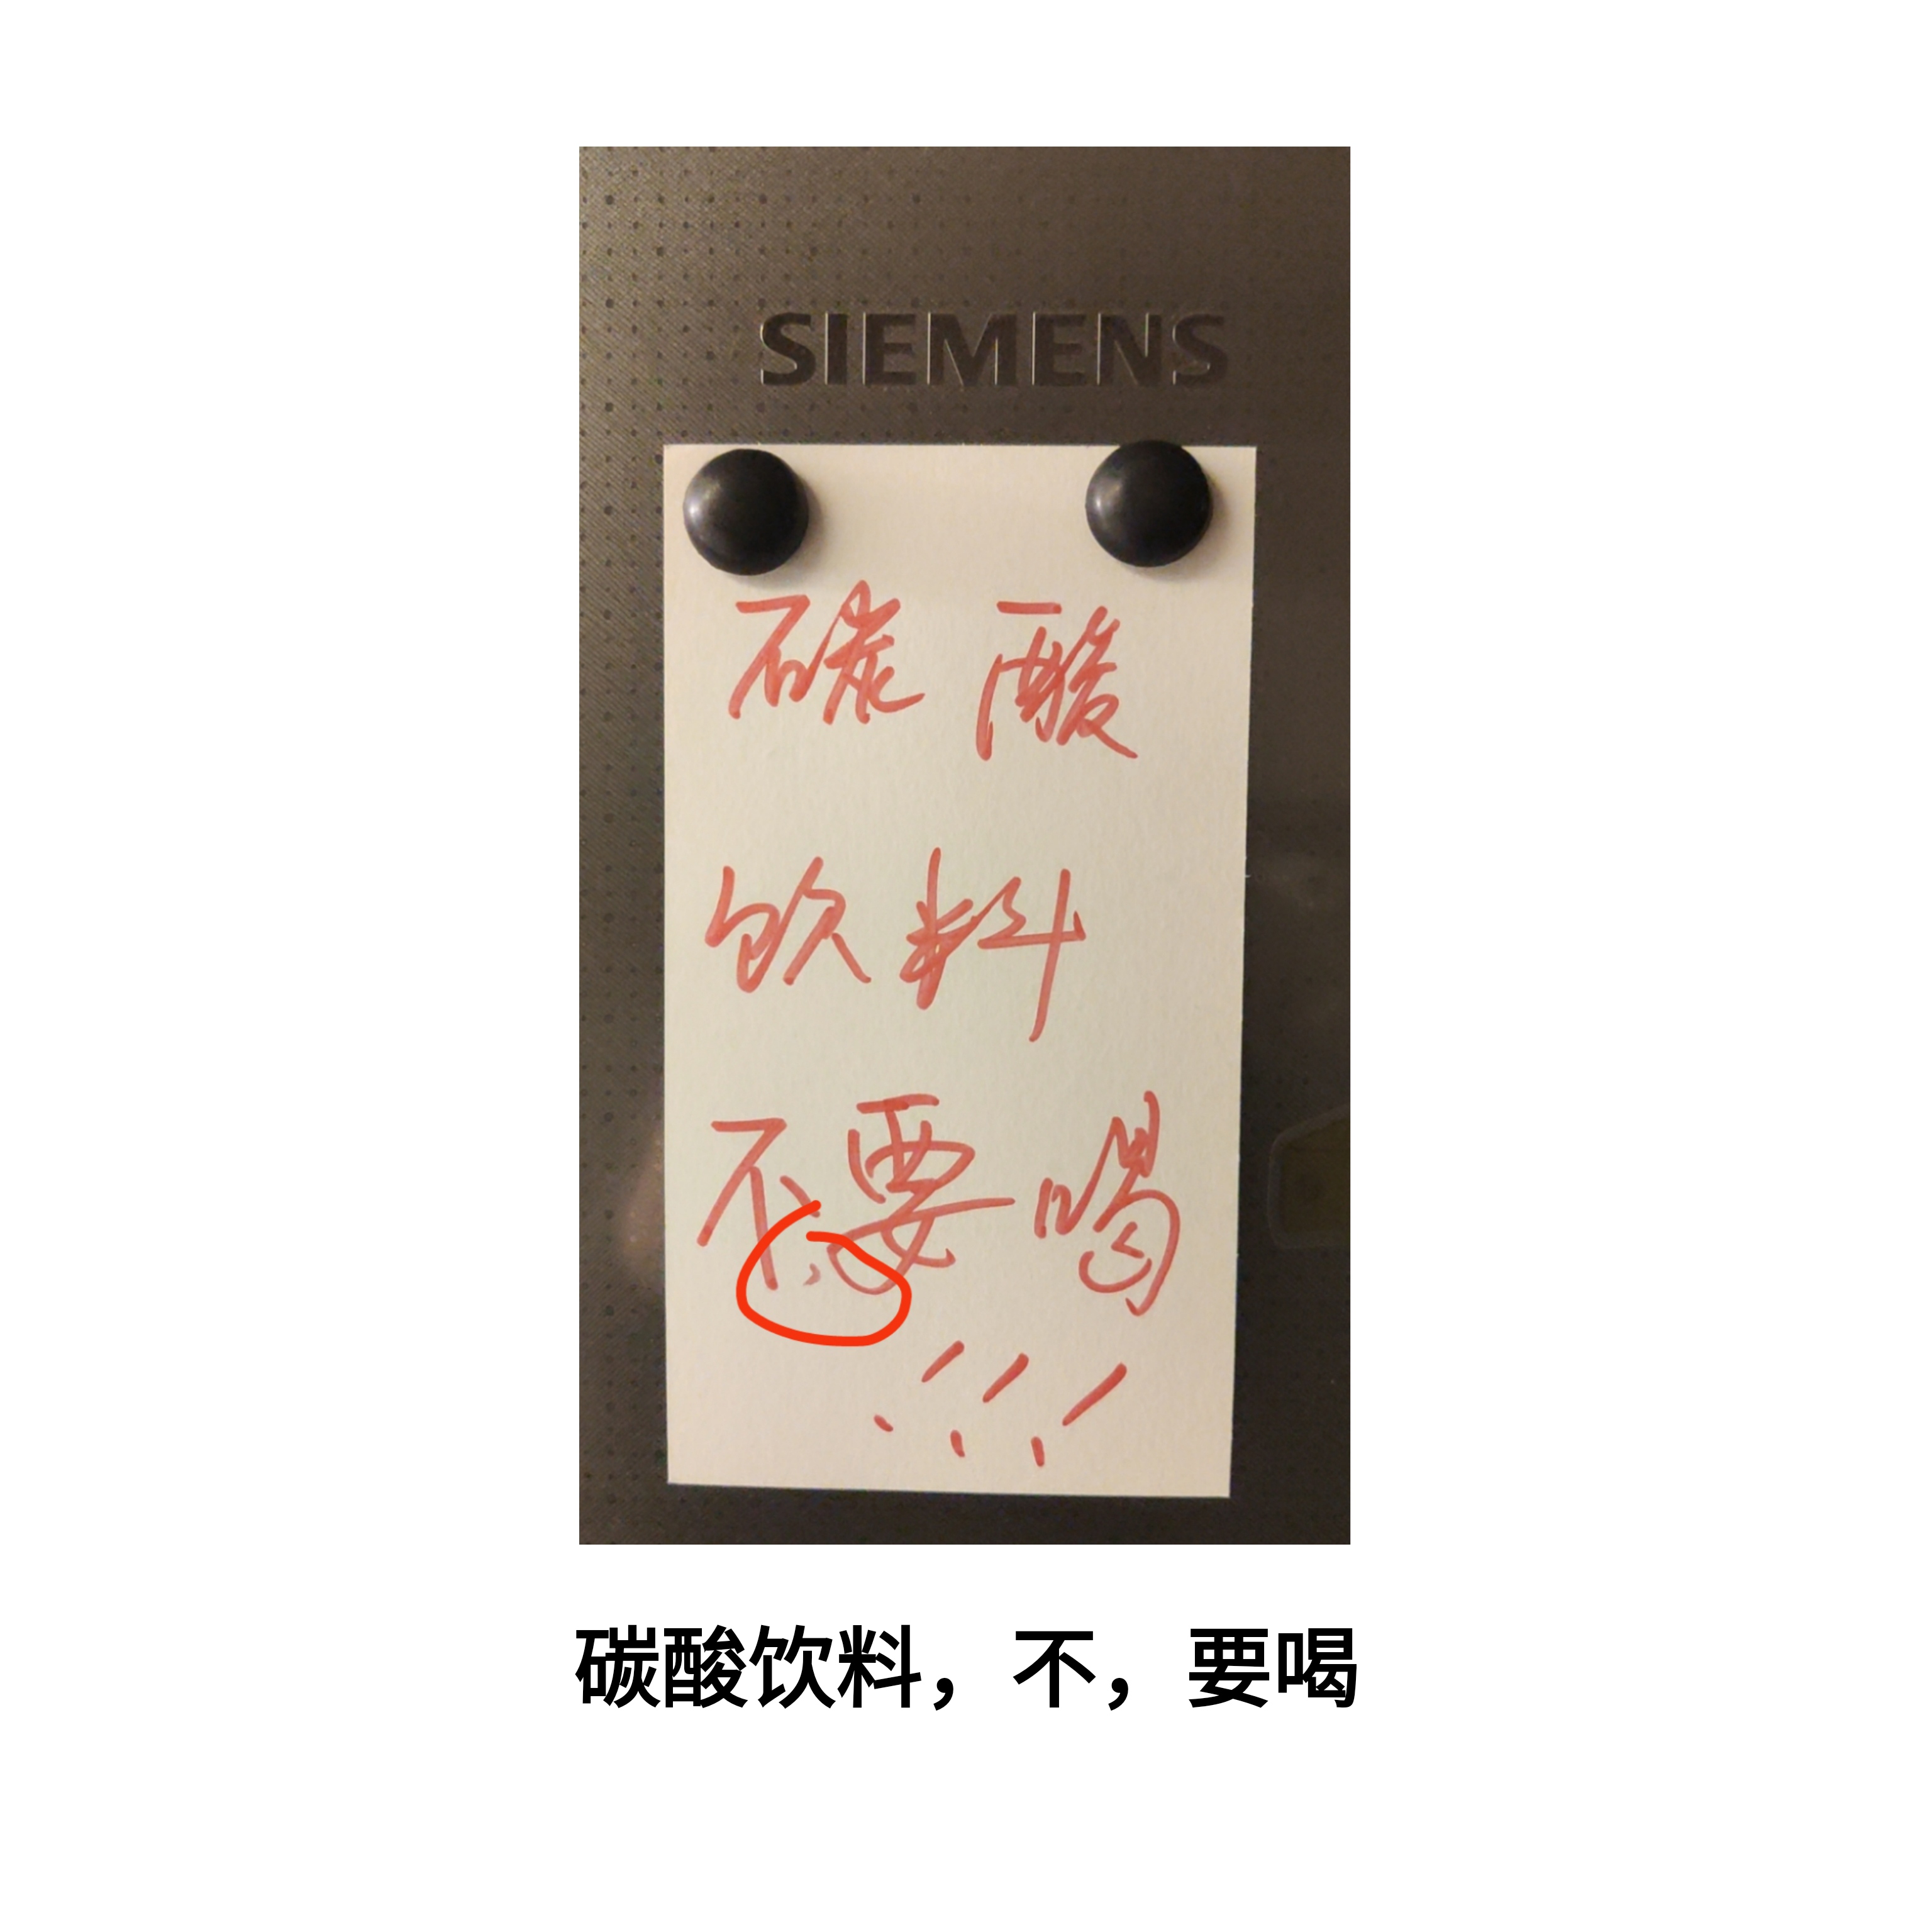 SIEMENS
碳酸
饮料
不,要喝
!!!
碳酸饮料，不，要喝